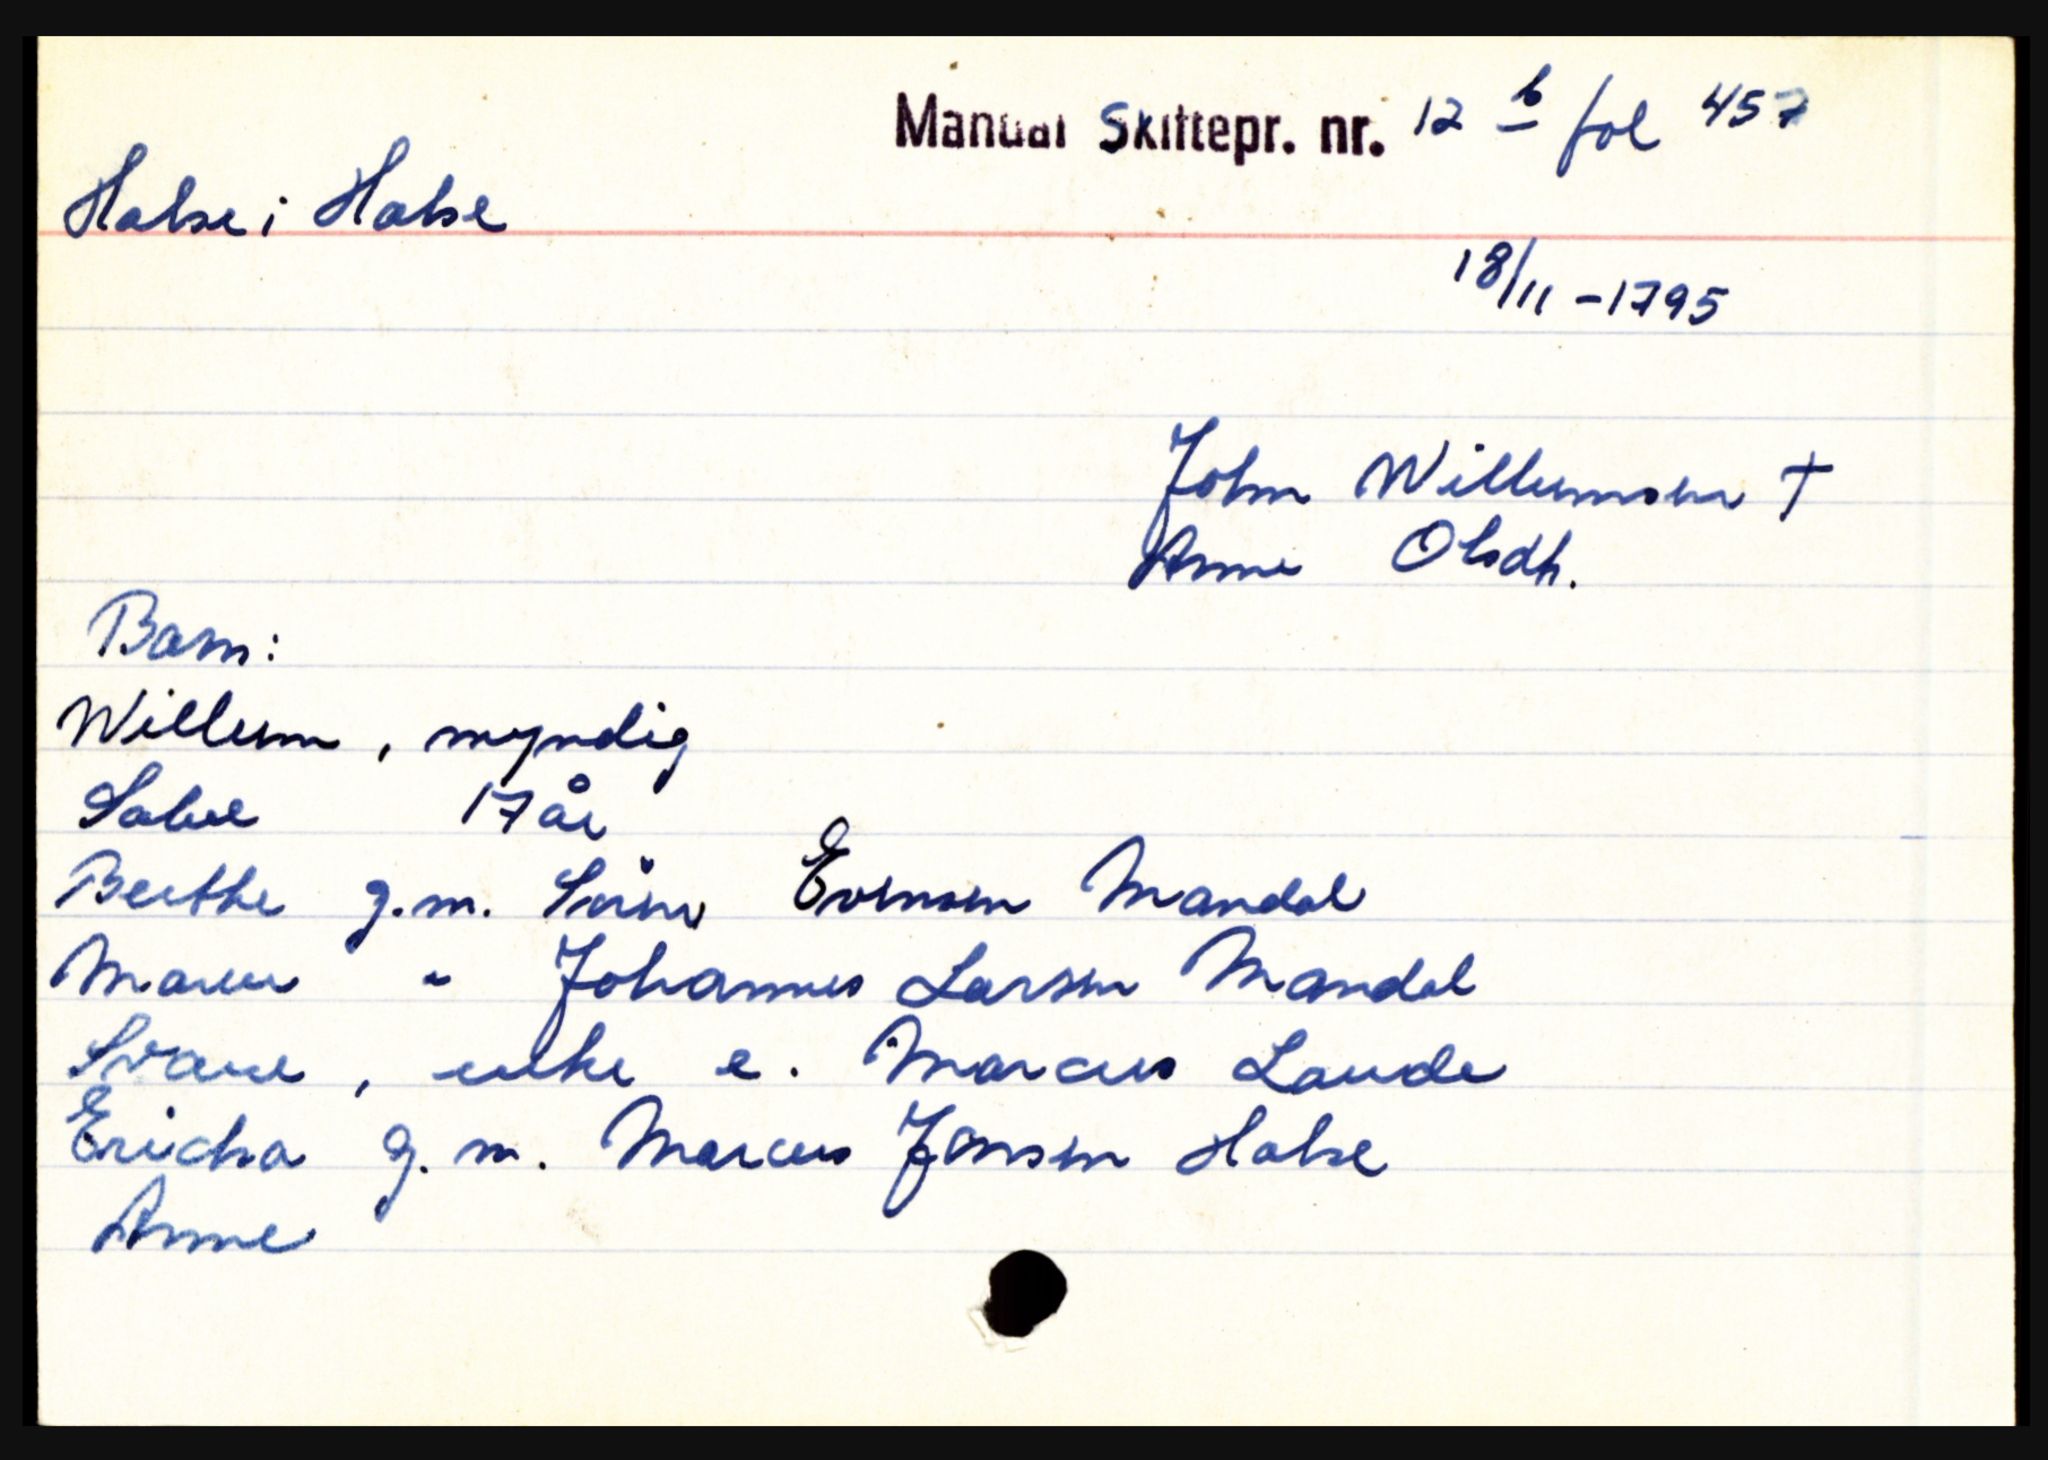 Mandal Skiftepr. nr. 12 b fol 457
Halse i Halse
18/11 - 1795
John Willumsen †
Anne Olsdt.
Barn:
Willum, myndig
Salve 17 år
Berthe g.m. Sören Evensen Mandal
Maren " Johannes Larsen Mandal
Svane, enke e. Marcus Laude
Ericha g.m. Marcus Jonsen Halse
Anne